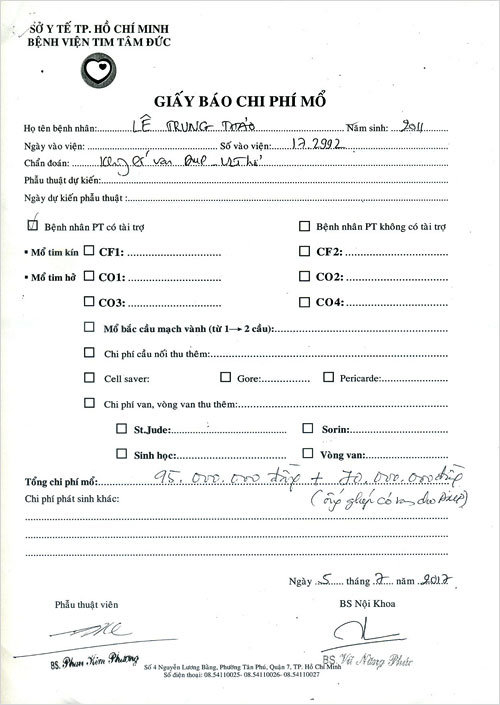 SỞ Y TẾ TP. HỒ CHÍ MINH
BỆNH VIỆN TIM TÂM ĐỨC
GIẤY BÁO CHI PHÍ MỔ
Họ tên bệnh nhân: LÊ TRUNG THẢO Năm sinh: 2011
Ngày vào viện: Số vào viện: 17.2992
Chẩn đoán: van ĐMP
Phẫu thuật dự kiến:
Ngày dự kiến phẫu thuật :
☑ Bệnh nhân PT có tài trợ ☐ Bệnh nhân PT không có tài trợ
▪ Mổ tim kín ☐ CF1: ☐ CF2:
▪ Mổ tim hở ☐ CO1: ☐ CO2:
☐ CO3: ☐ CO4:
☐ Mổ bắc cầu mạch vành (từ 1→ 2 cầu):
☐ Chi phí cầu nối thu thêm:
☐ Cell saver: ☐ Gore: ☐ Pericarde:
☐ Chi phí van, vòng van thu thêm:
☐ St.Jude: ☐ Sorin:
☐ Sinh học: ☐ Vòng van:
Tổng chi phí mổ: 95.000.000 đồng + 70.000.000 đồng
Chi phí phát sinh khác: (ống ghép có van cho ĐMP)
Ngày 5 tháng 7 năm 2017
Phẫu thuật viên BS Nội Khoa
BS. Phan Kim Phương BS. Vũ Năng Phúc
Số 4 Nguyễn Lương Bằng, Phường Tân Phú, Quận 7, TP. Hồ Chí Minh
Số điện thoại: 08.54110025- 08.54110026- 08.54110027